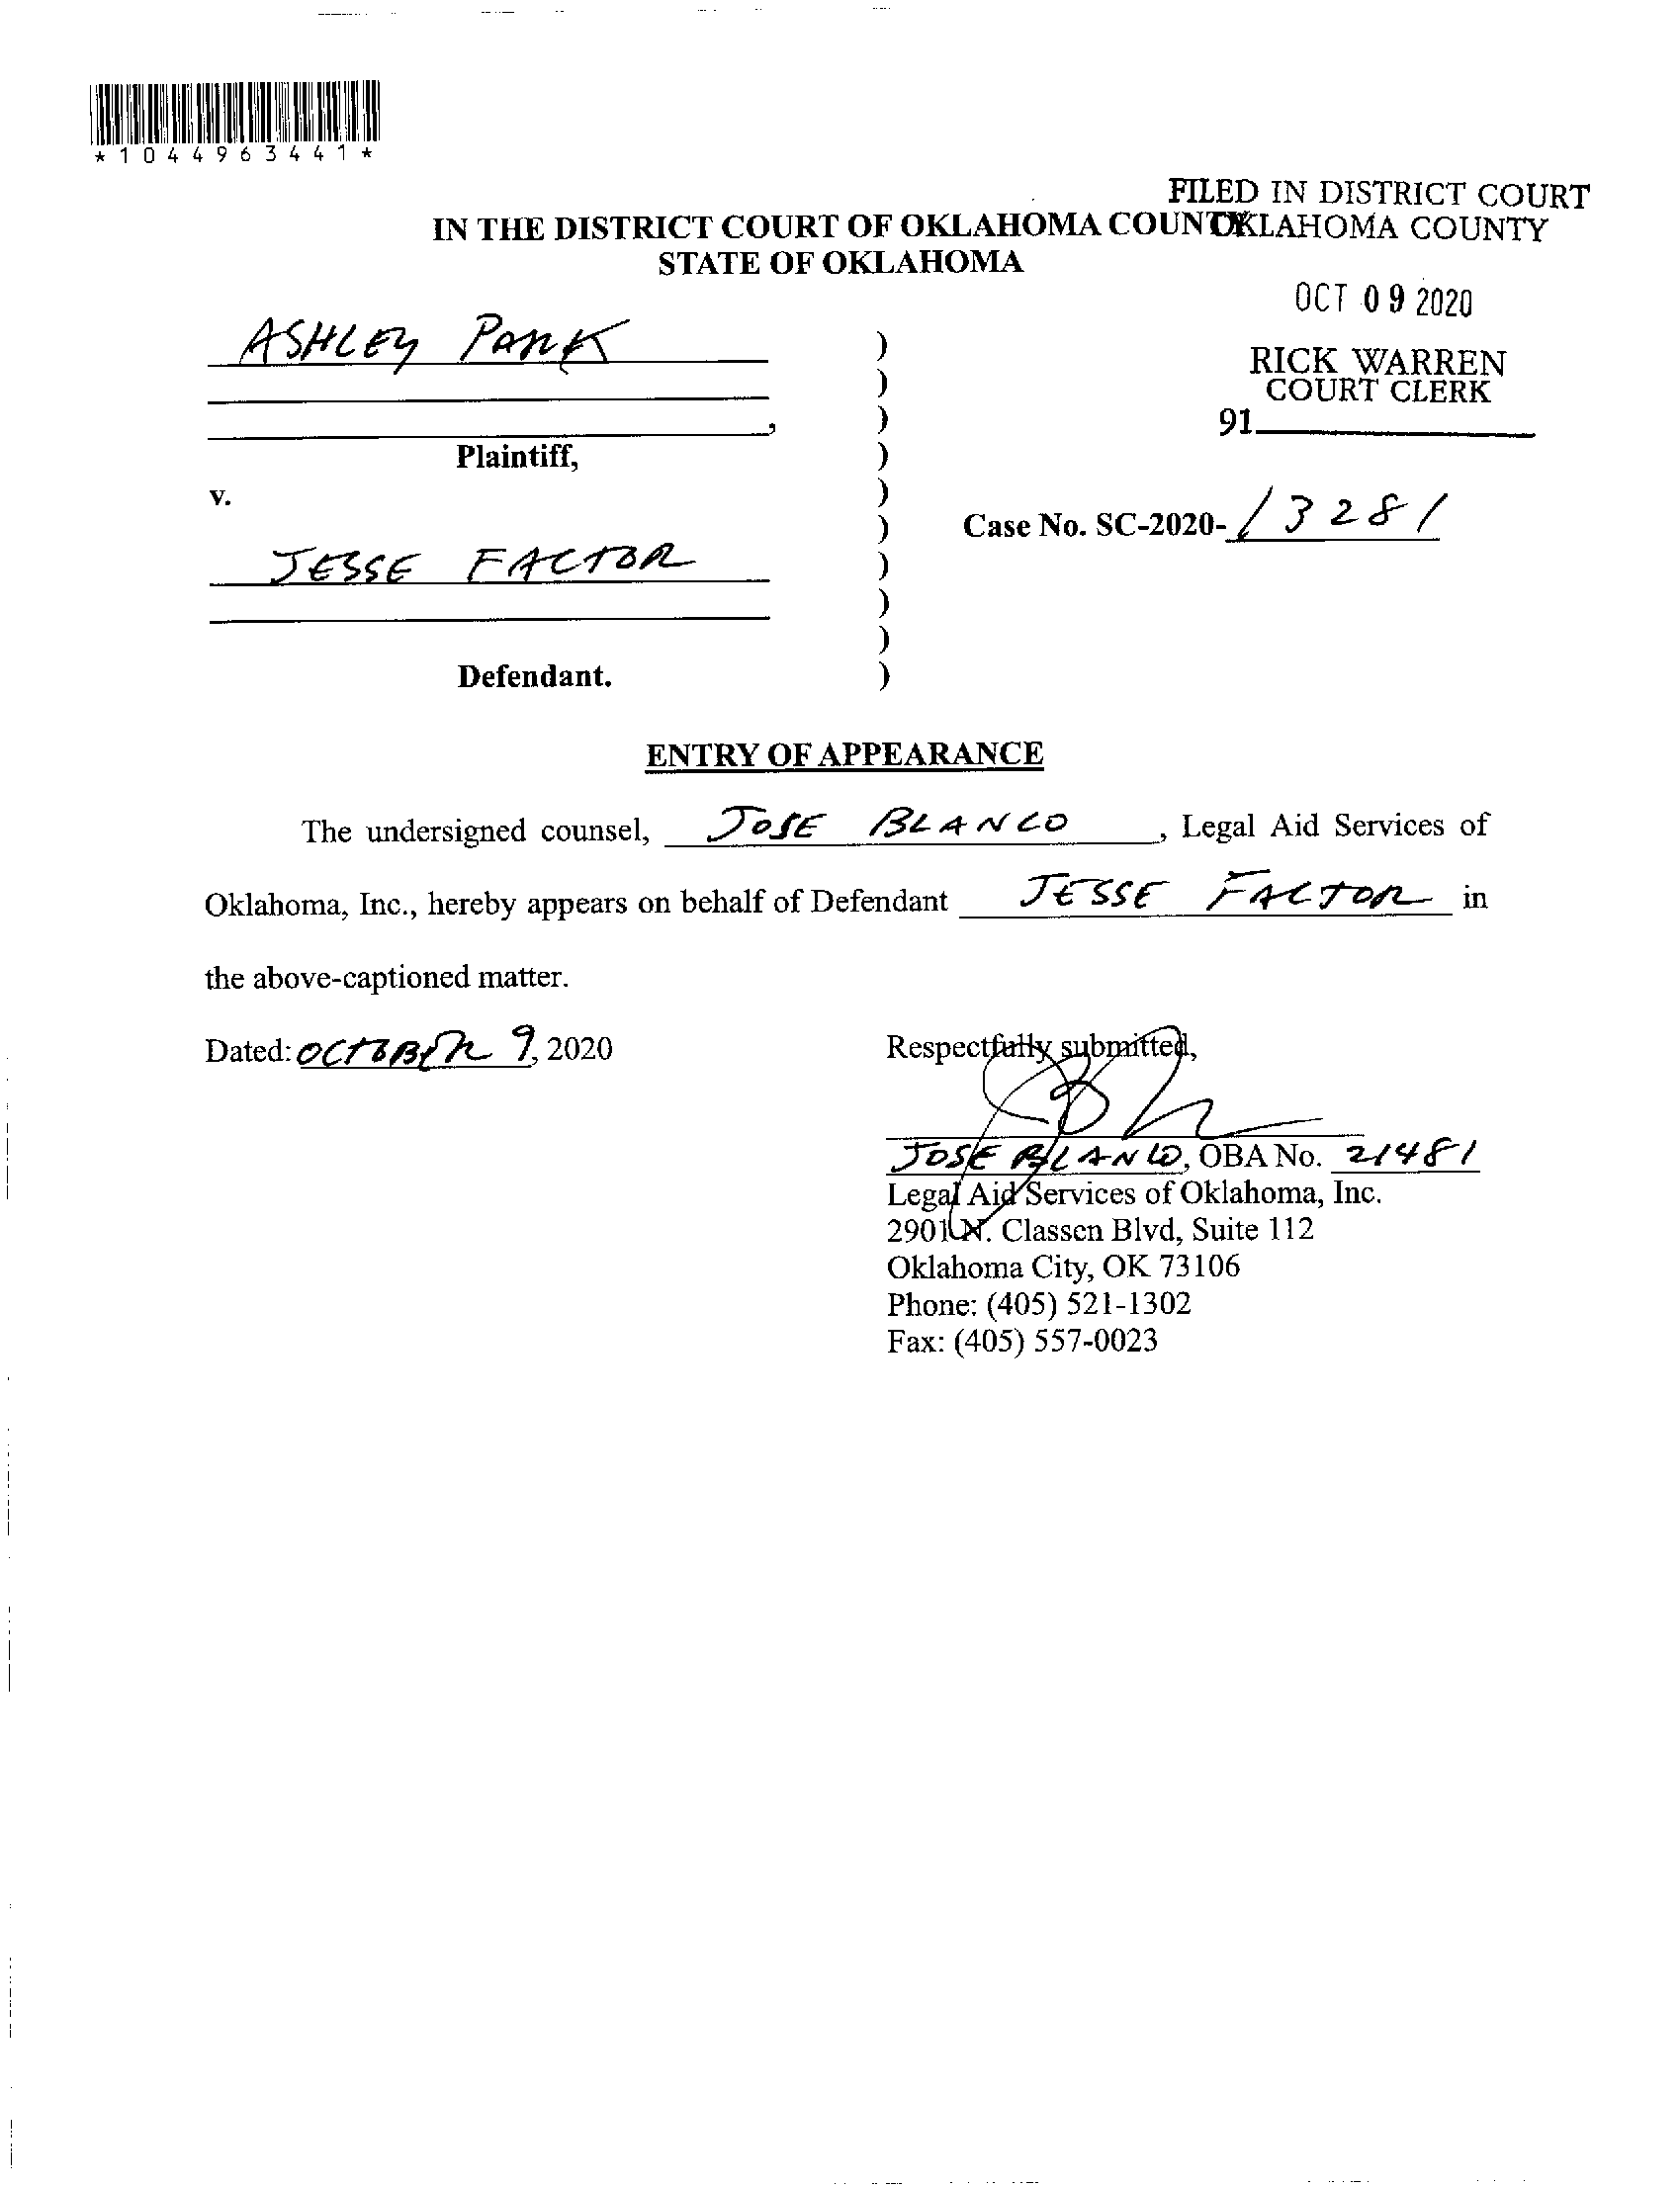 *1044963441*
FILED IN DISTRICT COURT
OKLAHOMA COUNTY
IN THE DISTRICT COURT OF OKLAHOMA COUNTY
STATE OF OKLAHOMA
OCT 09 2020
RICK WARREN
COURT CLERK
91
ASHLEY PARK )
)
, )
Plaintiff, )
v. )
Case No. SC-2020-13281 )
JESSE FACTOR )
)
)
Defendant. )
ENTRY OF APPEARANCE
The undersigned counsel, JOSE BLANCO, Legal Aid Services of
Oklahoma, Inc., hereby appears on behalf of Defendant JESSE FACTOR in
the above-captioned matter.
Dated: OCTOBER 9, 2020
Respectfully submitted,
JOSE BLANCO, OBA No. 21481
Legal Aid Services of Oklahoma, Inc.
2901 N. Classen Blvd, Suite 112
Oklahoma City, OK 73106
Phone: (405) 521-1302
Fax: (405) 557-0023